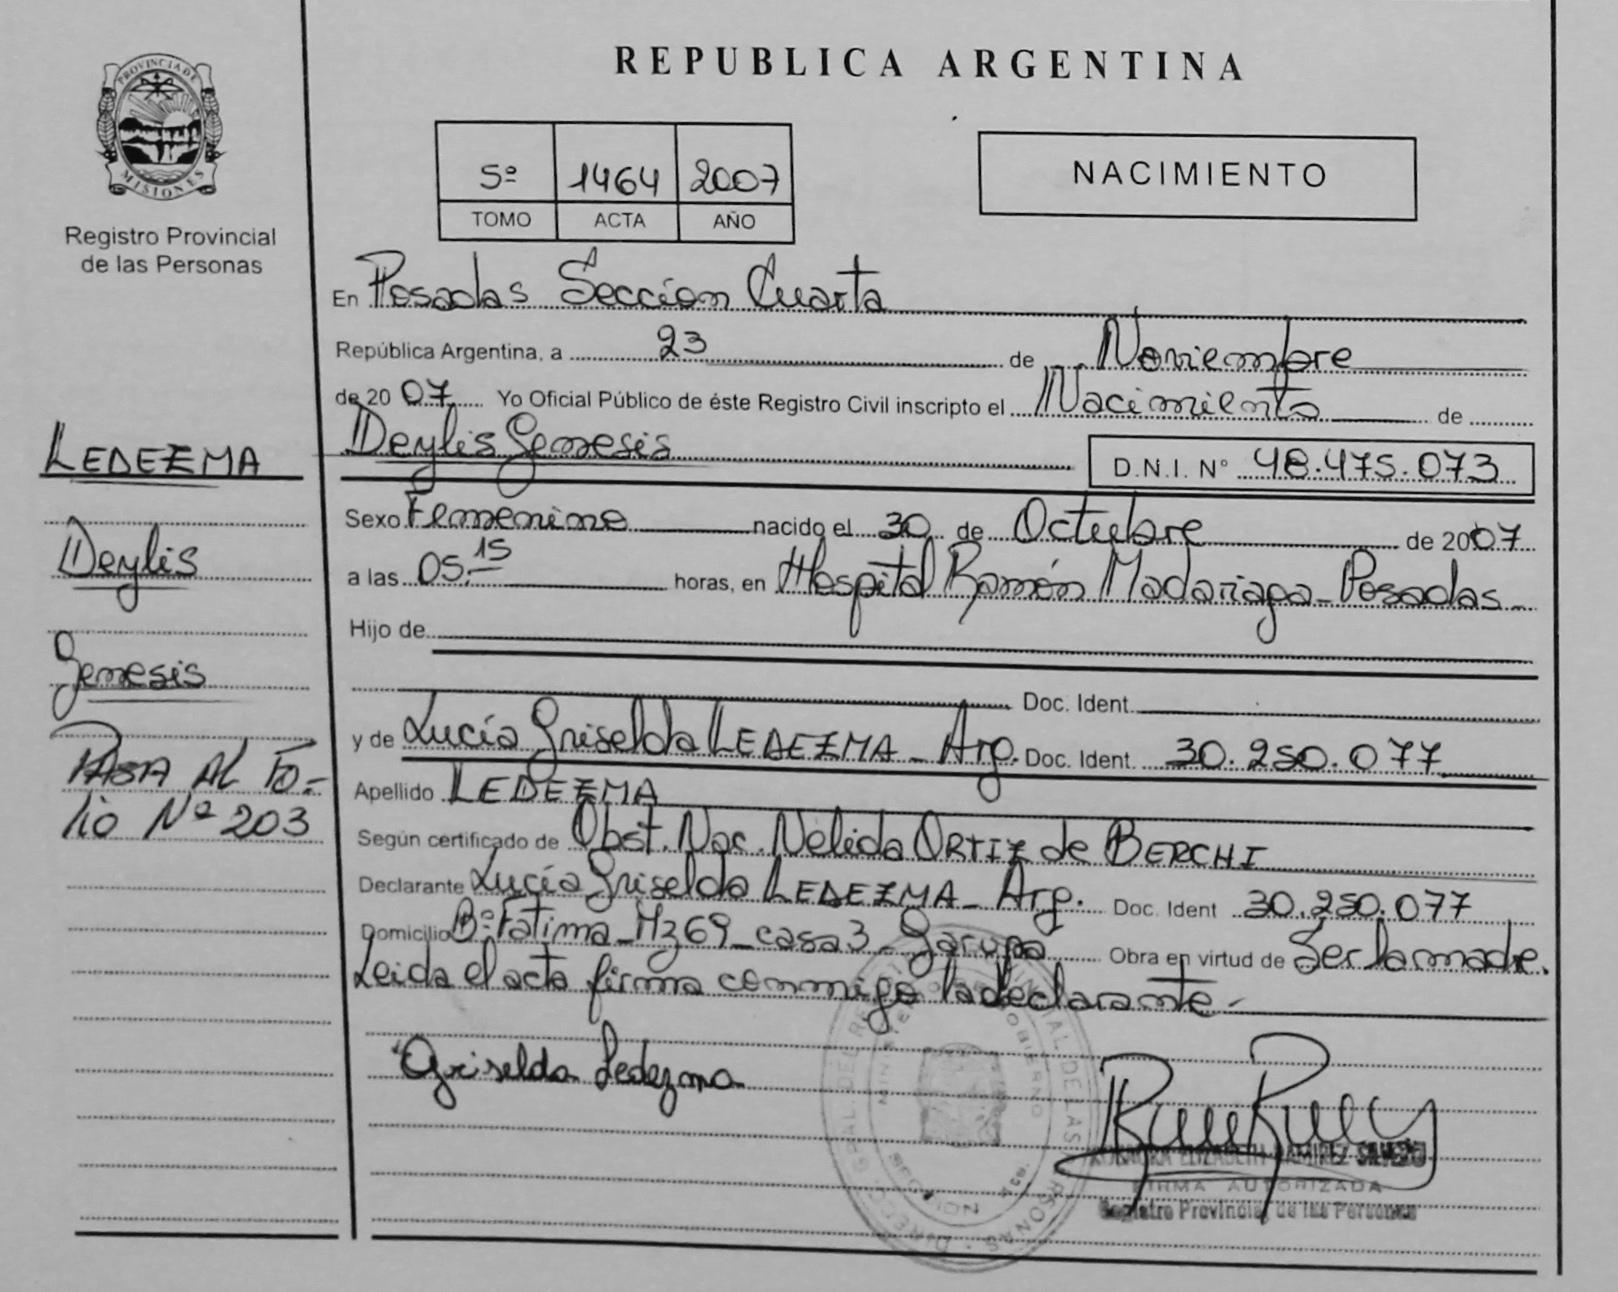 PROVINCIA DE
MISIONES
Registro Provincial
de las Personas
REPUBLICA ARGENTINA
5º 1464 2007
TOMO ACTA AÑO
NACIMIENTO
En Posadas Sección Cuarta
República Argentina, a 23 de Noviembre
de 2007 Yo Oficial Público de éste Registro Civil inscripto el Nacimiento de
Deylis Genesis D.N.I. Nº 48.475.073
Sexo Femenino nacido el 30 de Octubre de 2007
a las 05.15 horas, en Hospital Ramón Madariaga - Posadas
Hijo de
Doc. Ident.
y de Lucía Griselda LEDEZMA - Arg. Doc. Ident. 30.250.077
Apellido LEDEZMA
Según certificado de Obst. Nac. Nelida ORTIZ de BERCHI
Declarante Lucía Griselda LEDEZMA - Arg. Doc. Ident 30.250.077
Domicilio Bº Fatima - Mz 69 - casa 3 - Garupa Obra en virtud de Ser la madre.
Leida el acta firma conmigo la declarante -
Griselda Ledezma
ELIZABETH RAMIREZ
FIRMA AUTORIZADA
Registro Provincial de las Personas
LEDEZMA
Deylis
Genesis
PASA AL FO-
lio Nº 203